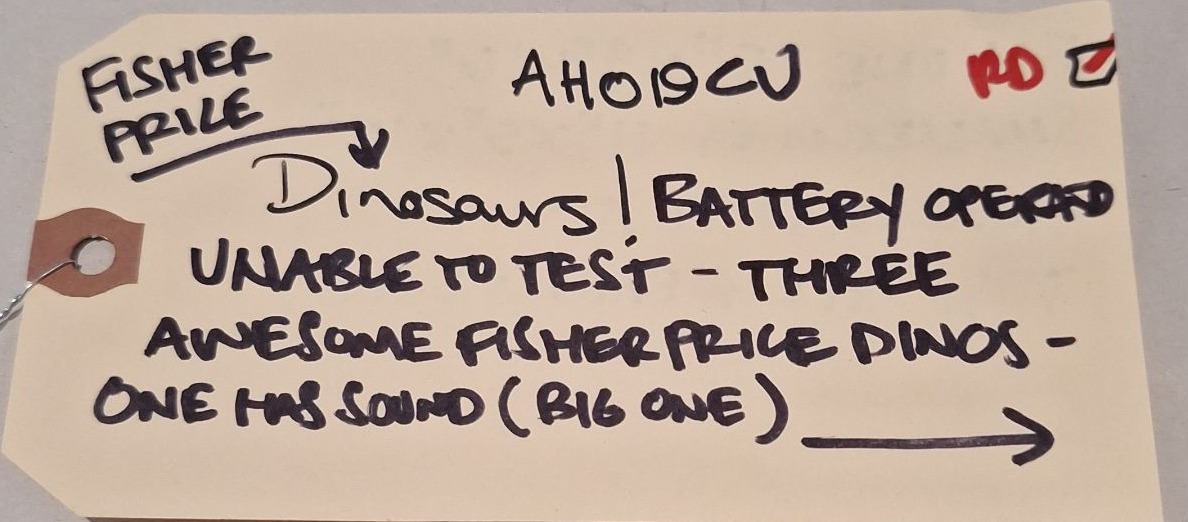 FISHER
PRICE
AH019CU RD
Dinosaurs! BATTERY OPERATED
UNABLE TO TEST - THREE
AWESOME FISHER PRICE DINOS -
ONE HAS SOUND (BIG ONE)